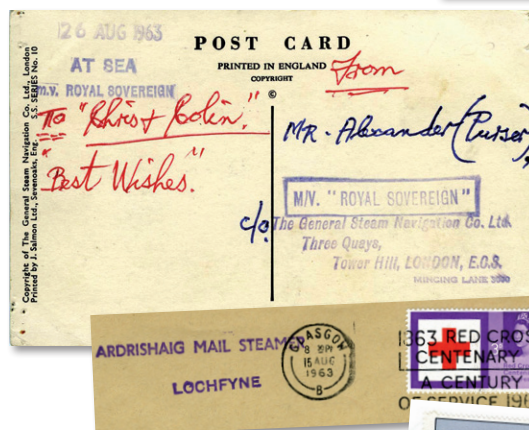 26 AUG 1963
AT SEA
m.v. ROYAL SOVEREIGN
POST CARD
PRINTED IN ENGLAND
COPYRIGHT
©
From
To "Chris & Colin."
"Best Wishes."
MR. Alexander (Purser)
c/o
M/V. "ROYAL SOVEREIGN"
The General Steam Navigation Co. Ltd.
Three Quays,
Tower Hill, LONDON, E.C.3.
MINCING LANE 3000
Copyright of The General Steam Navigation Co. Ltd., London
Printed by J. Salmon Ltd., Sevenoaks, Eng. S.S. SERIES No. 10
ARDRISHAIG MAIL STEAMER
LOCHFYNE
GLASGOW
8 PM
15 AUG
1963
B
1863 RED CROS
CENTENARY
A CENTURY
OF SERVICE 196